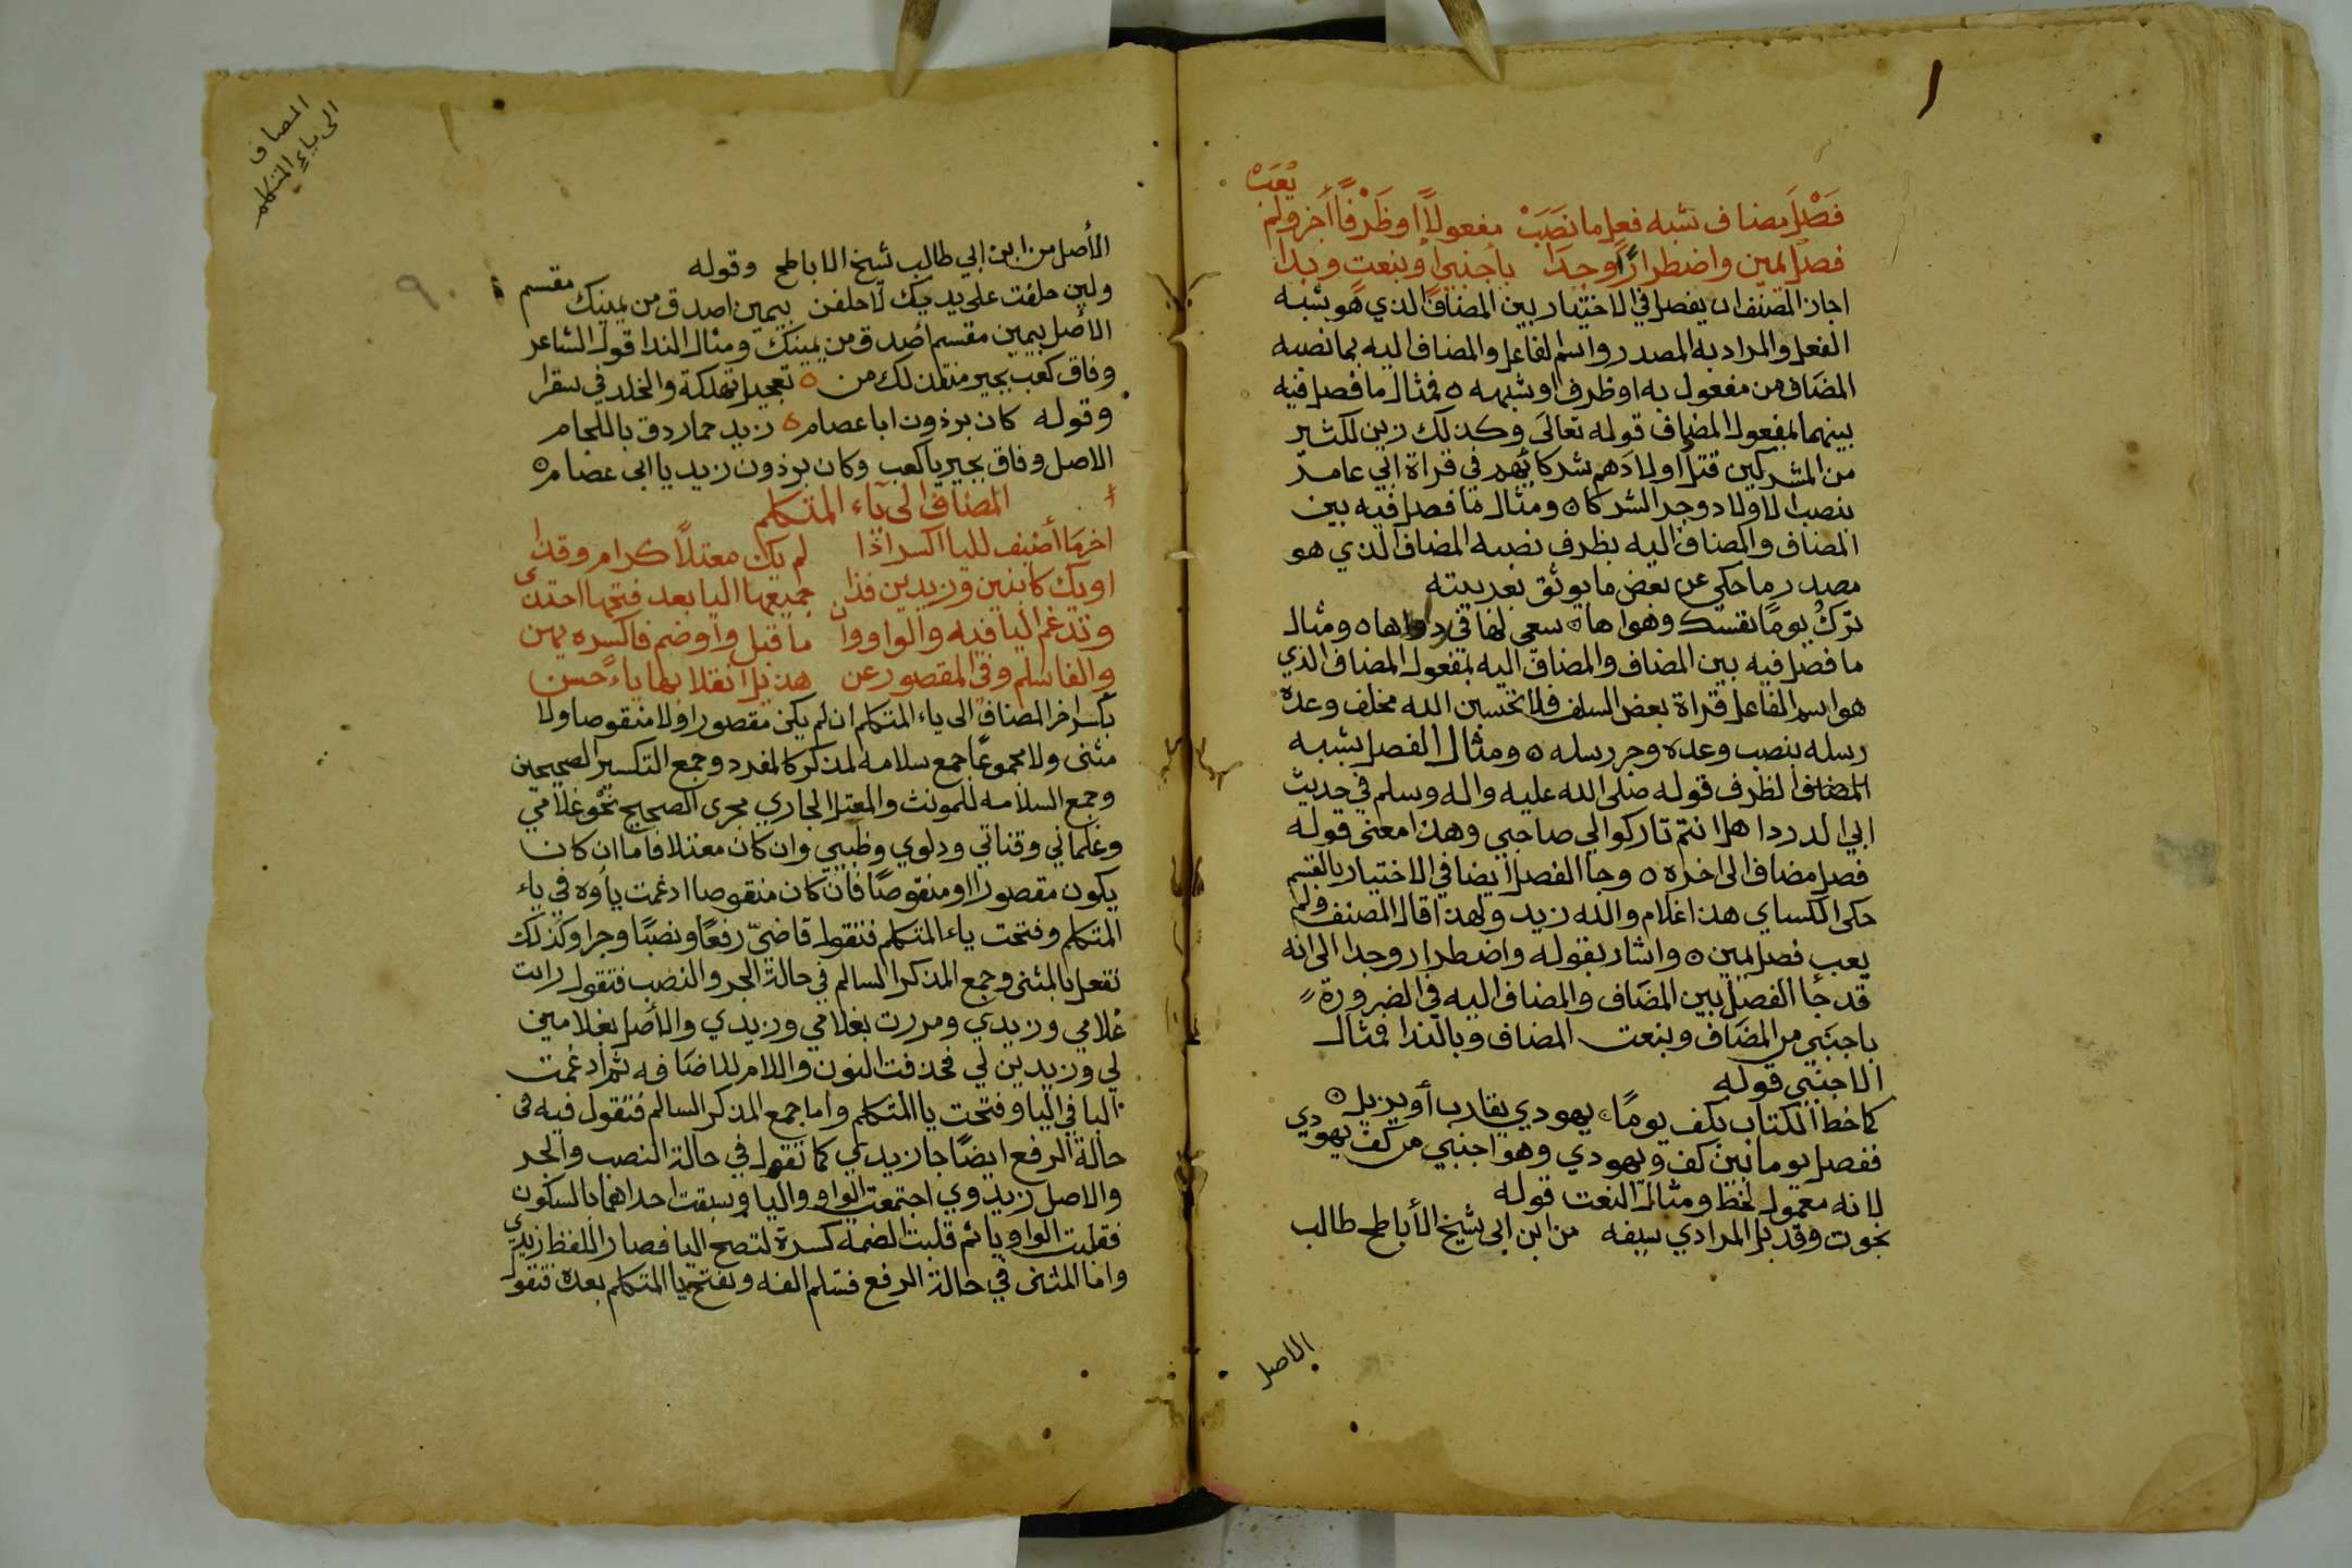 يُعَبْ
فَصْلَ مضاف شبه فعل ما نَصَبَ مفعولاً او ظَرْفًا أجز ولم
فصل يمين واضطرارًا وجدا باجنبي او بنعت وبدا
اجاز المصنف ان يفصل في الاختيار بين المضاف الذي هو شبه
الفعل والمراد به المصدر واسم الفاعل والمضاف اليه بما نصبه
المضاف من مفعول به او ظرف او شبهه ٥ فمثال ما فصل فيه
بينهما بمفعول المضاف قوله تعالى وكذلك زين لكثير
من المشركين قتل اولادهم شركائهم في قراة ابي عامر
بنصب الاولاد وجر الشركا ٥ ومثال ما فصل فيه بين
المضاف والمضاف اليه بظرف نصبه المضاف الذي هو
مصدر ما حكي عن بعض ما يوثق بعربيته
تركُ يومًا نفسك وهواها ٥ سعي لها في رداها ٥ ومثال
ما فصل فيه بين المضاف والمضاف اليه بمفعول المضاف الذي
هو اسم الفاعل قراة بعض السلف فلا تحسبن الله مخلف وعده
رسله بنصب وعده وجر رسله ٥ ومثال الفصل بشبه
الظرف قوله صلى الله عليه واله وسلم في حديث
ابي الدردا هل انتم تاركوا لي صاحبي وهذا معنى قوله
فصل مضاف الى اخره ٥ وجا الفصل ايضا في الاختيار بالقسم
حكى الكساي هذا غلام والله زيد ولهذا قال المصنف ولم
يعب فصل يمين ٥ واشار بقوله واضطرار وجدا الى انه
قد جا الفصل بين المضاف والمضاف اليه في الضرورة
باجنبي من المضاف وبنعت المضاف وبالندا فمثال
الاجنبي قوله
كما خط الكتاب بكف يومًا يهودي يقارب أو يزيل ٥
ففصل بيوما بين كف ويهودي وهو اجنبي من كف يهودي
لانه معمول لخط ومثال النعت قوله
نجوت وقد بل المرادي سيفه من ابن ابي شيخ الأباطح طالب
الاصل
المضاف
الى ياء المتكلم
٩٠
الأصل من ابن ابي طالب شيخ الاباطح وقوله
ولين حلفت على يديك لاحلفن بيمين اصدق من يمينك مقسم
الاصل بيمين مقسم أصدق من يمينك ومثال الندا قول الشاعر
وفاق كعب بجير منقذ لك من ٥ تعجيل تهلكة والخلد في سقرا
وقوله كان برذون ابا عصام ٥ زيد حمار دق باللجام
الاصل وفاق بجير يا كعب وكان برذون زيد يا ابى عصام ٥
المضاف الى ياء المتكلم
اخر ما أضيف لليا اكسر اذا لم يك معتلاً كرام وقذا
او يك كابنين وزيدين فذا جميعها اليا بعد فتحها احتذى
وتدغم اليا فيه والواو وان ما قبل واو ضم فاكسره يهن
والفا سلم وفي المقصور عن هذيل انقلابها ياءً حسن
يكسر اخر المضاف الى ياء المتكلم ان لم يكن مقصورا ولا منقوصا ولا
مثنى ولا مجموعًا جمع سلامه لمذكر كالمفرد وجمع التكسير الصحيحين
وجمع السلامه للمونث والمعتل الجاري مجرى الصحيح نحو غلامي
وغلماني وقناتي ودلوي وظبيي وان كان معتلا فاما ان كان
يكون مقصورا او منقوصًا فان كان منقوصا ادغمت ياوه في ياء
المتكلم وفتحت ياء المتكلم فتقول قاضيّ رفعًا ونصبًا وجرا وكذلك
تفعل بالمثنى وجمع المذكر السالم في حالة الجر والنصب فتقول رايت
غلامي وزيدي ومررت بغلامي وزيدي والأصل بغلامين
لي وزيدين لي فحذفت النون واللام للاضافه ثم ادغمت
اليا في اليا وفتحت يا المتكلم واما جمع المذكر السالم فتقول فيه في
حالة الرفع ايضًا جا زيدي كما تقول في حالة النصب والجر
والاصل زيدوي اجتمعت الواو واليا وسبقت احداهما بالسكون
فقلبت الواو يا ثم قلبت الضمه كسرة لتصح اليا فصار اللفظ زيدي
واما المثنى في حالة الرفع فتسلم الفه وتفتح يا المتكلم بعده فتقول